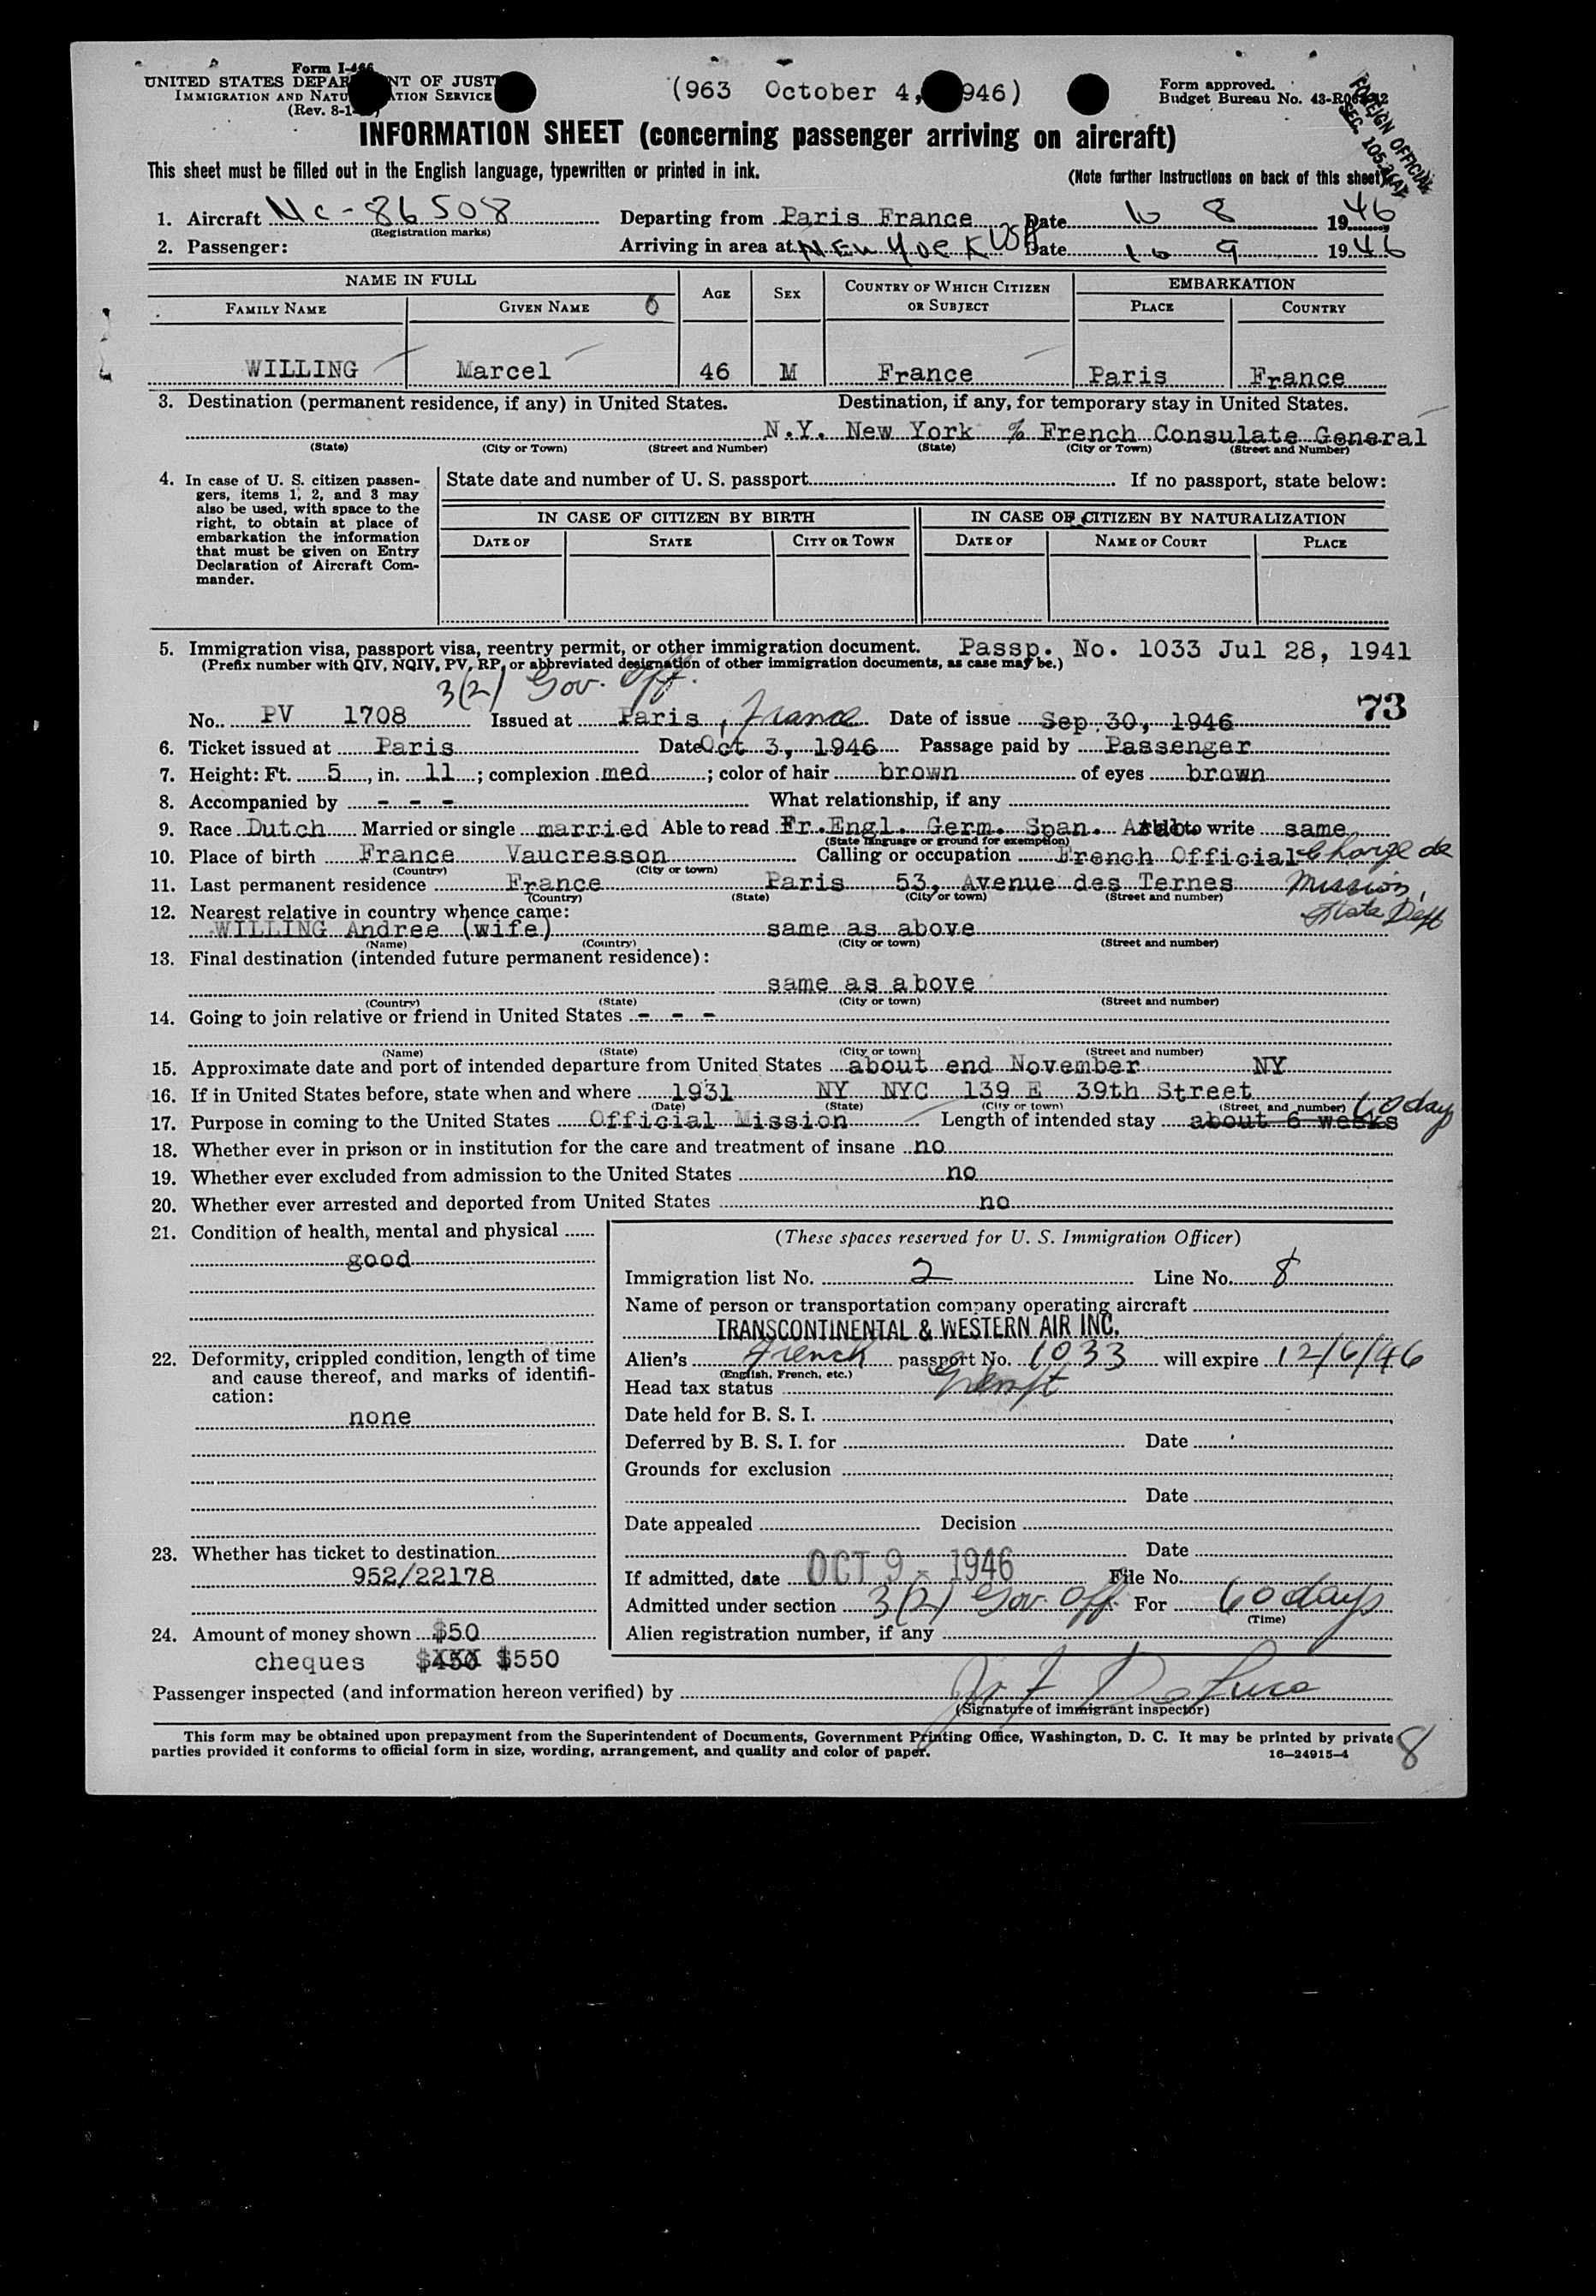 Form I-466
UNITED STATES DEPARTMENT OF JUSTICE
IMMIGRATION AND NATURALIZATION SERVICE
(Rev. 8-1-
(963 October 4, 1946)
Form approved.
Budget Bureau No. 43-R
FOREIGN OFFICIAL
SEC. 105.3
INFORMATION SHEET (concerning passenger arriving on aircraft)
This sheet must be filled out in the English language, typewritten or printed in ink.
(Note further instructions on back of this sheet)
1. Aircraft Nc-86508 Departing from Paris France Date 10 8 1946
(Registration marks)
2. Passenger: Arriving in area at NEW YORK USA Date 10 9 1946
NAME IN FULL
FAMILY NAME GIVEN NAME AGE SEX COUNTRY OF WHICH CITIZEN OR SUBJECT EMBARKATION PLACE COUNTRY
WILLING Marcel 46 M France Paris France
3. Destination (permanent residence, if any) in United States. Destination, if any, for temporary stay in United States.
N.Y. New York % French Consulate General
(State) (City or Town) (Street and Number) (State) (City or Town) (Street and Number)
4. In case of U. S. citizen passen-
gers, items 1, 2, and 3 may
also be used, with space to the
right, to obtain at place of
embarkation the information
that must be given on Entry
Declaration of Aircraft Com-
mander.
State date and number of U. S. passport If no passport, state below:
IN CASE OF CITIZEN BY BIRTH IN CASE OF CITIZEN BY NATURALIZATION
DATE OF STATE CITY OR TOWN DATE OF NAME OF COURT PLACE
5. Immigration visa, passport visa, reentry permit, or other immigration document. Passp. No. 1033 Jul 28, 1941
(Prefix number with QIV, NQIV, PV, RP, or abbreviated designation of other immigration documents, as case may be.)
3(2) Gov. Off.
73
No. PV 1708 Issued at Paris, France Date of issue Sep 30, 1946
6. Ticket issued at Paris Date Oct 3, 1946 Passage paid by Passenger
7. Height: Ft. 5, in. 11; complexion med; color of hair brown of eyes brown
8. Accompanied by - - - What relationship, if any
9. Race Dutch Married or single married Able to read Fr. Engl. Germ. Span. Arab. Able to write same
(State language or ground for exemption)
10. Place of birth France Vaucresson Calling or occupation French Official Charge de
(Country) (City or town)
Mission,
State Dept
11. Last permanent residence France Paris 53, Avenue des Ternes
(Country) (State) (City or town) (Street and number)
12. Nearest relative in country whence came:
WILLING Andree (wife) same as above
(Name) (Country) (City or town) (Street and number)
13. Final destination (intended future permanent residence):
same as above
(Country) (State) (City or town) (Street and number)
14. Going to join relative or friend in United States - - -
(Name) (State) (City or town) (Street and number)
15. Approximate date and port of intended departure from United States about end November NY
16. If in United States before, state when and where 1931 NY NYC 139 E 39th Street
(Date) (State) (City or town) (Street and number)
17. Purpose in coming to the United States Official Mission Length of intended stay about 6 weeks 60 days
18. Whether ever in prison or in institution for the care and treatment of insane no
19. Whether ever excluded from admission to the United States no
20. Whether ever arrested and deported from United States no
21. Condition of health, mental and physical
good
22. Deformity, crippled condition, length of time
and cause thereof, and marks of identifi-
cation:
none
23. Whether has ticket to destination
952/22178
24. Amount of money shown $50
cheques $450 $550
(These spaces reserved for U. S. Immigration Officer)
Immigration list No. 2 Line No. 8
Name of person or transportation company operating aircraft
TRANSCONTINENTAL & WESTERN AIR INC.
Alien's French passport No. 1033 will expire 12/6/46
(English, French, etc.)
Head tax status Exempt
Date held for B. S. I.
Deferred by B. S. I. for Date
Grounds for exclusion
Date
Date appealed Decision
Date
If admitted, date OCT 9 - 1946 File No.
Admitted under section 3(2) Gov. Off. For 60 days
(Time)
Alien registration number, if any
Passenger inspected (and information hereon verified) by
(Signature of immigrant inspector)
This form may be obtained upon prepayment from the Superintendent of Documents, Government Printing Office, Washington, D. C. It may be printed by private
parties provided it conforms to official form in size, wording, arrangement, and quality and color of paper. 16—24915-4
8